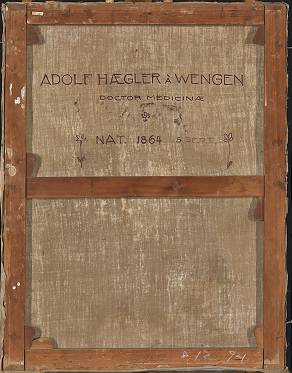 ADOLF HÆGLER À WENGEN
DOCTOR MEDICINÆ
NAT. 1864 5 SEPT.